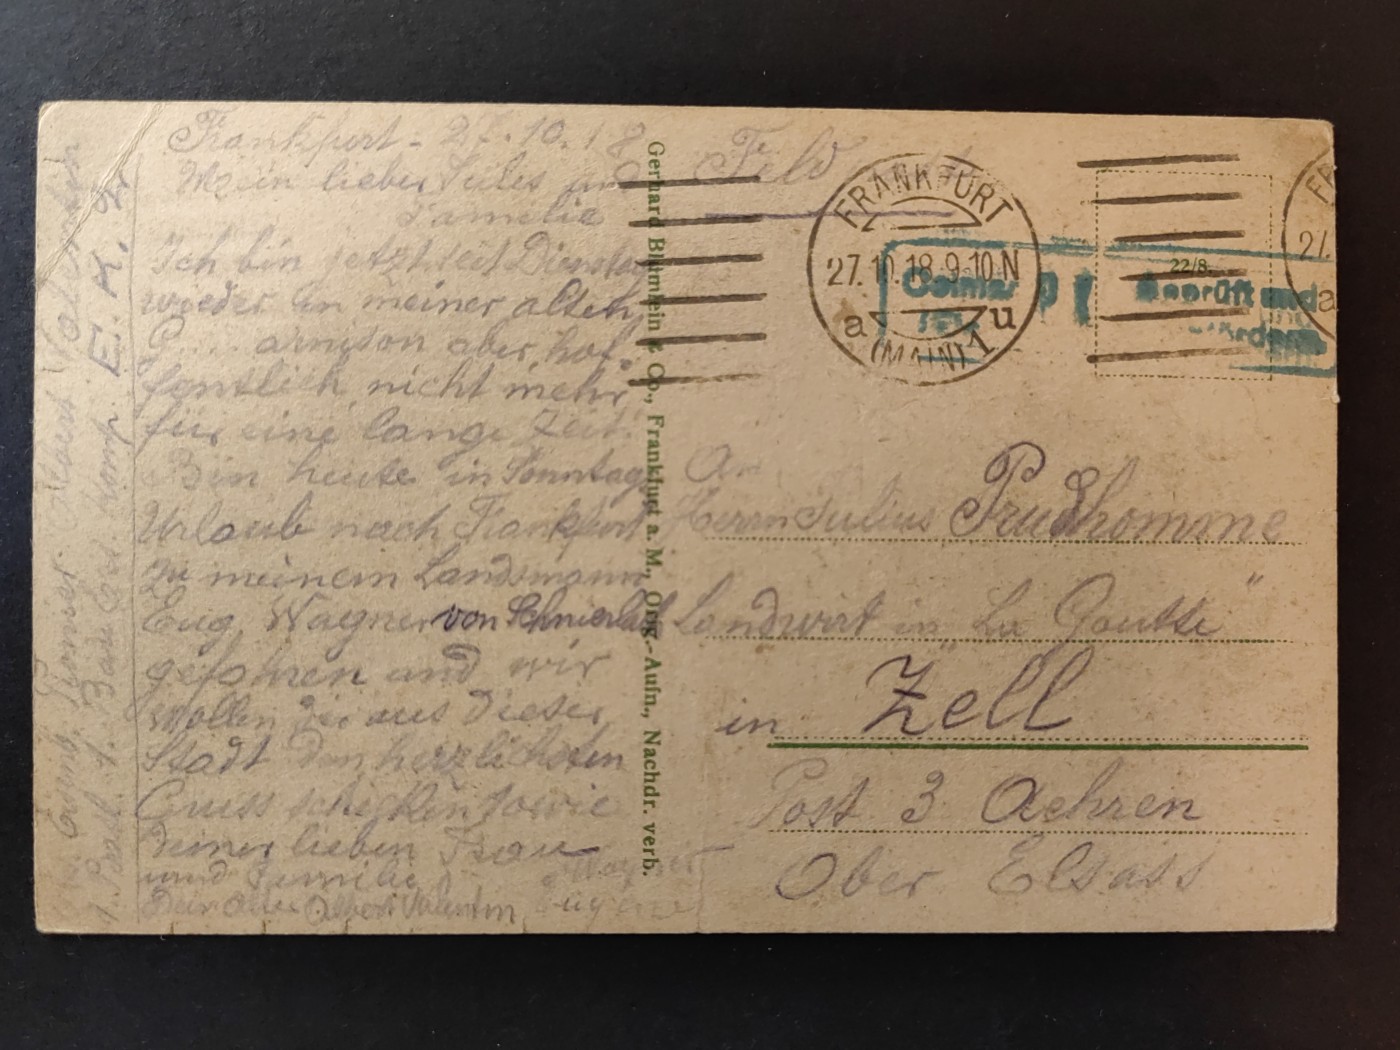 Frankfurt - 27.10.18
Mein lieber Jules und
Familie
Ich bin jetzt seit Dienstag
wieder in meiner alten
G....arnison aber hof-
fentlich nicht mehr
für eine lange Zeit.
Bin heute in Sonntags
Urlaub nach Frankfurt
zu meinem Landsmann
Eug. Wagner von Schnierlach
gefahren und wir
wollen Dir aus dieser
Stadt den herzlichsten
Gruss schicken sowie
Deiner lieben Frau
und Familie
Dein Albert Valentin
Wagner
Eugene
Pionier Albert Valentin
1. Komp. E. K. Zr
Gerhard Blümlein & Co., Frankfurt a. M., Orig.-Aufn., Nachdr. verb.
Feld
FRANKFURT
27.10.18.9-10.N
a u
(MAIN) 1
22/8.
Colmar
Geprüft und
An
Herrn Julius Prudhomme
Landwirt in „La Goutte"
in Zell
Post 3 Aehren
Ober Elsass
FR
27.
a